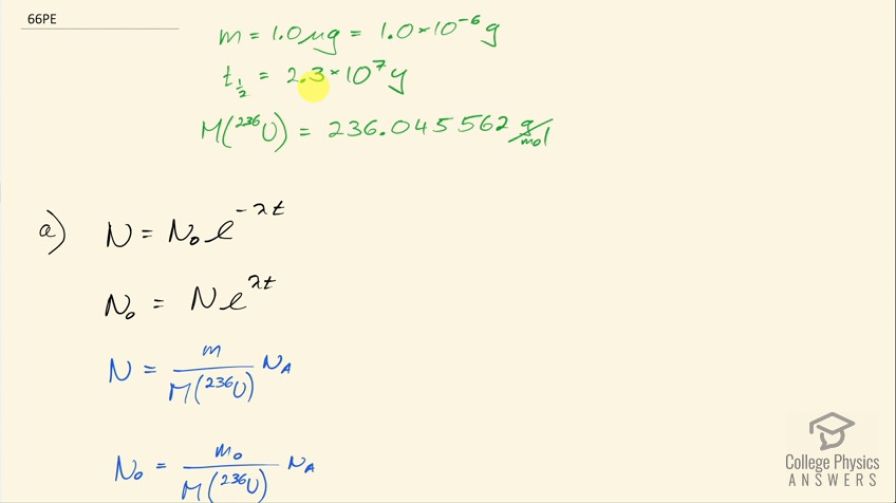 66PE
m = 1.0 μg = 1.0×10⁻⁶ g
t½ = 2.3×10⁷ y
M(²³⁶U) = 236.045562 g/mol
a) N = N₀ e^(-λt)
N₀ = N e^(λt)
N = m / M(²³⁶U) N_A
N₀ = m₀ / M(²³⁶U) N_A
College Physics
ANSWERS